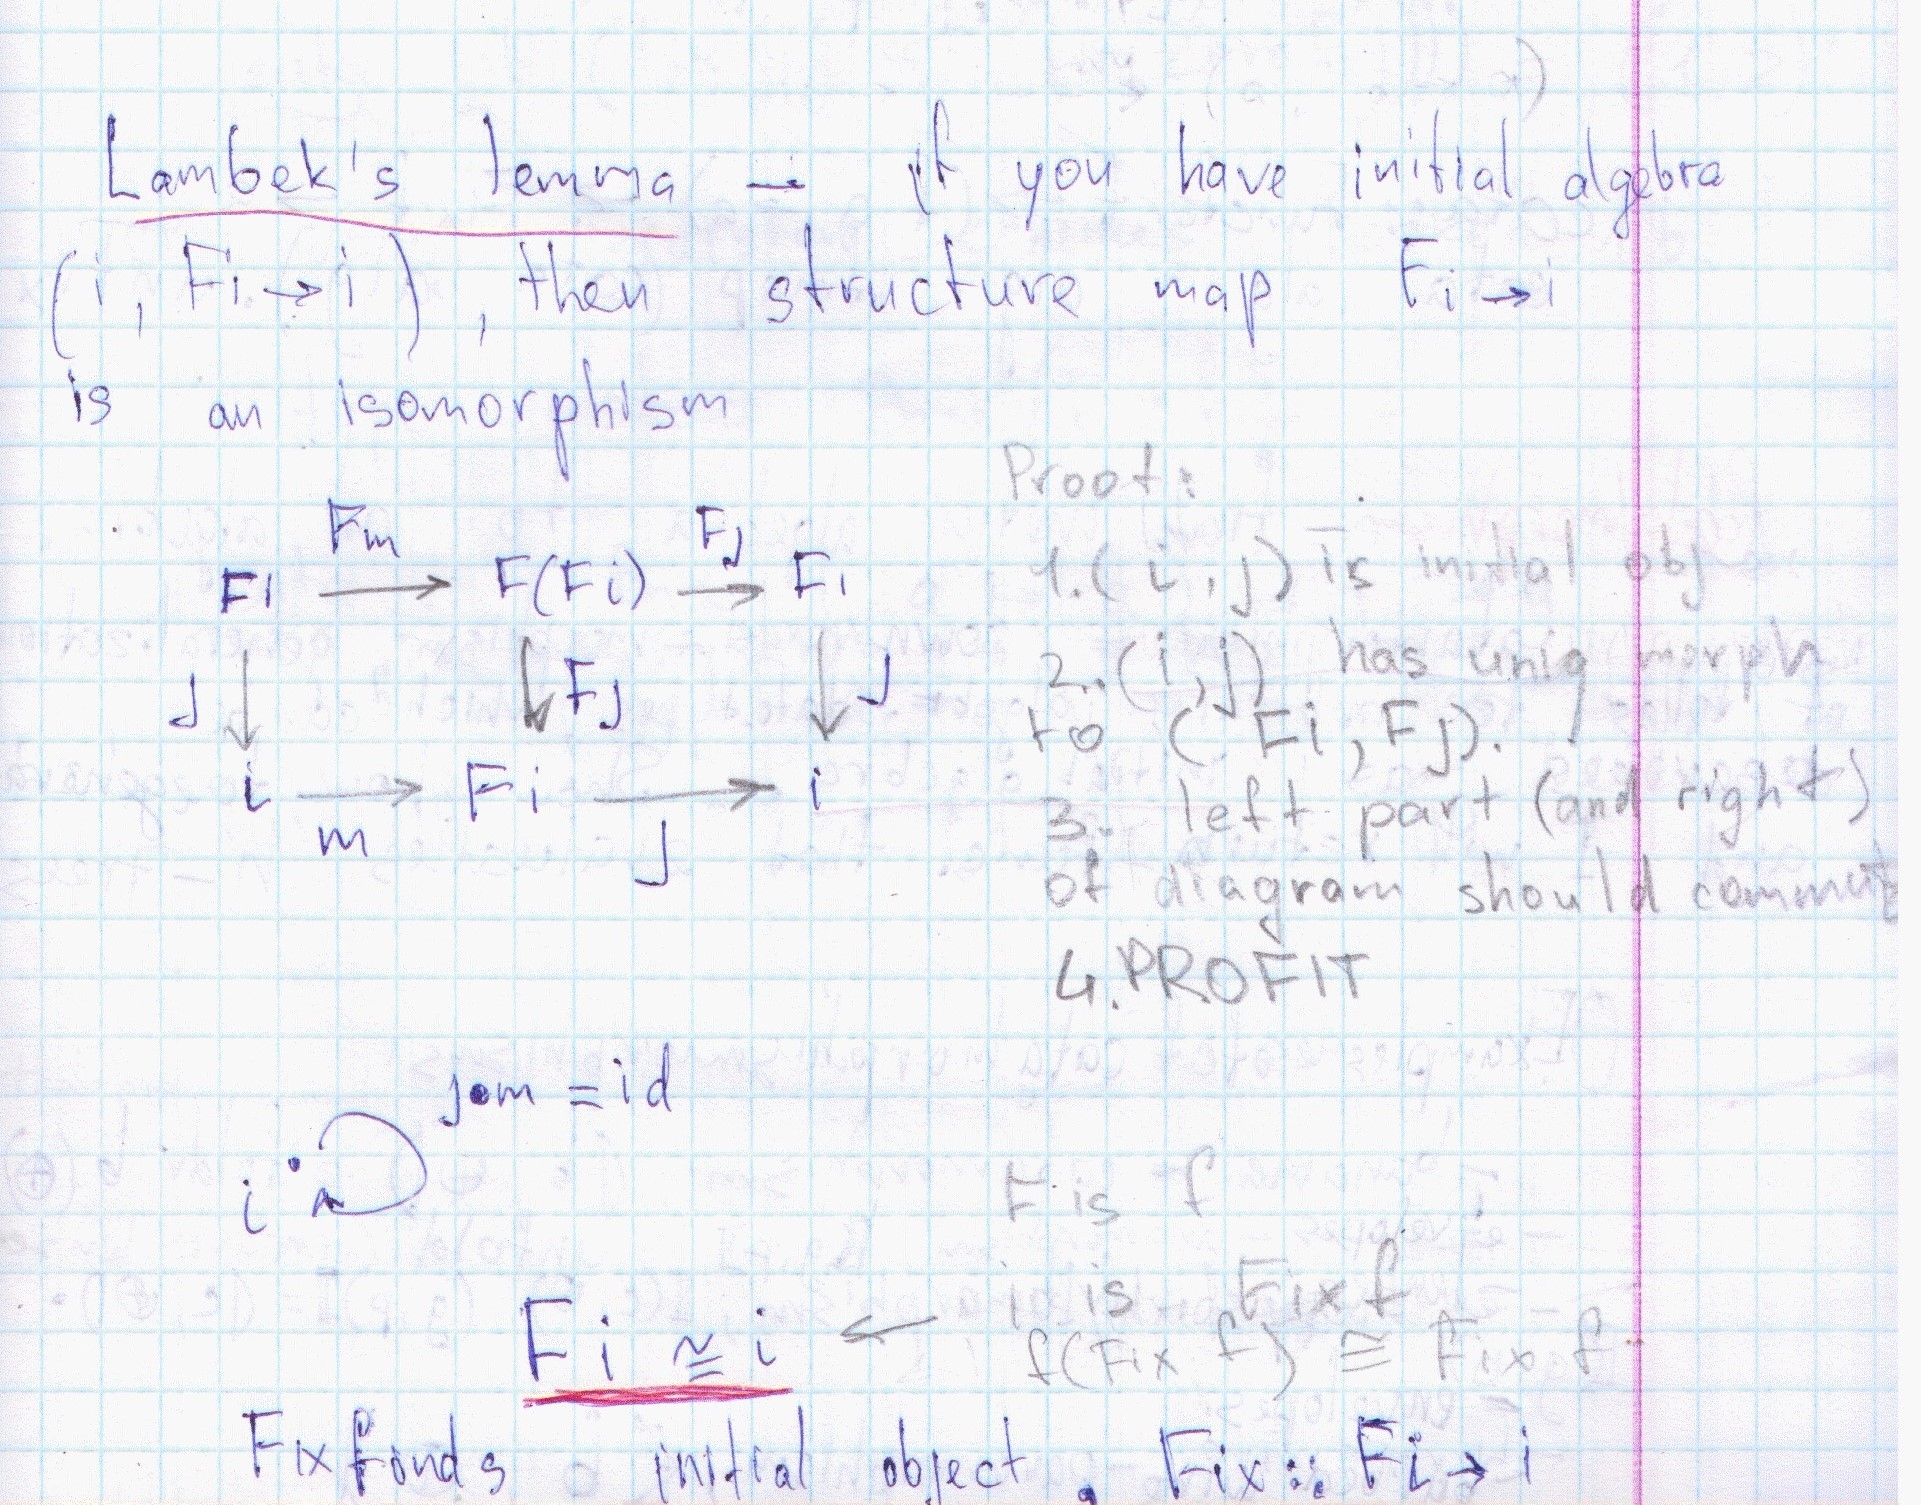 Lambek's lemma — if you have initial algebra
(i, Fi → i), then structure map Fi → i
is an isomorphism
Proof:
Fm Fj
Fi → F(Fi) → Fi
j Fj j
i → Fi → i
m j
1. (i, j) is initial obj
2. (i, j) has uniq morph
to (Fi, Fj).
3. left part (and right)
of diagram should commute
4. PROFIT
j∘m = id
i
F is f
i is Fix f
Fi ≅ i ← f(Fix f) ≅ Fix f
Fix fonds initial object. Fix :: Fi → i